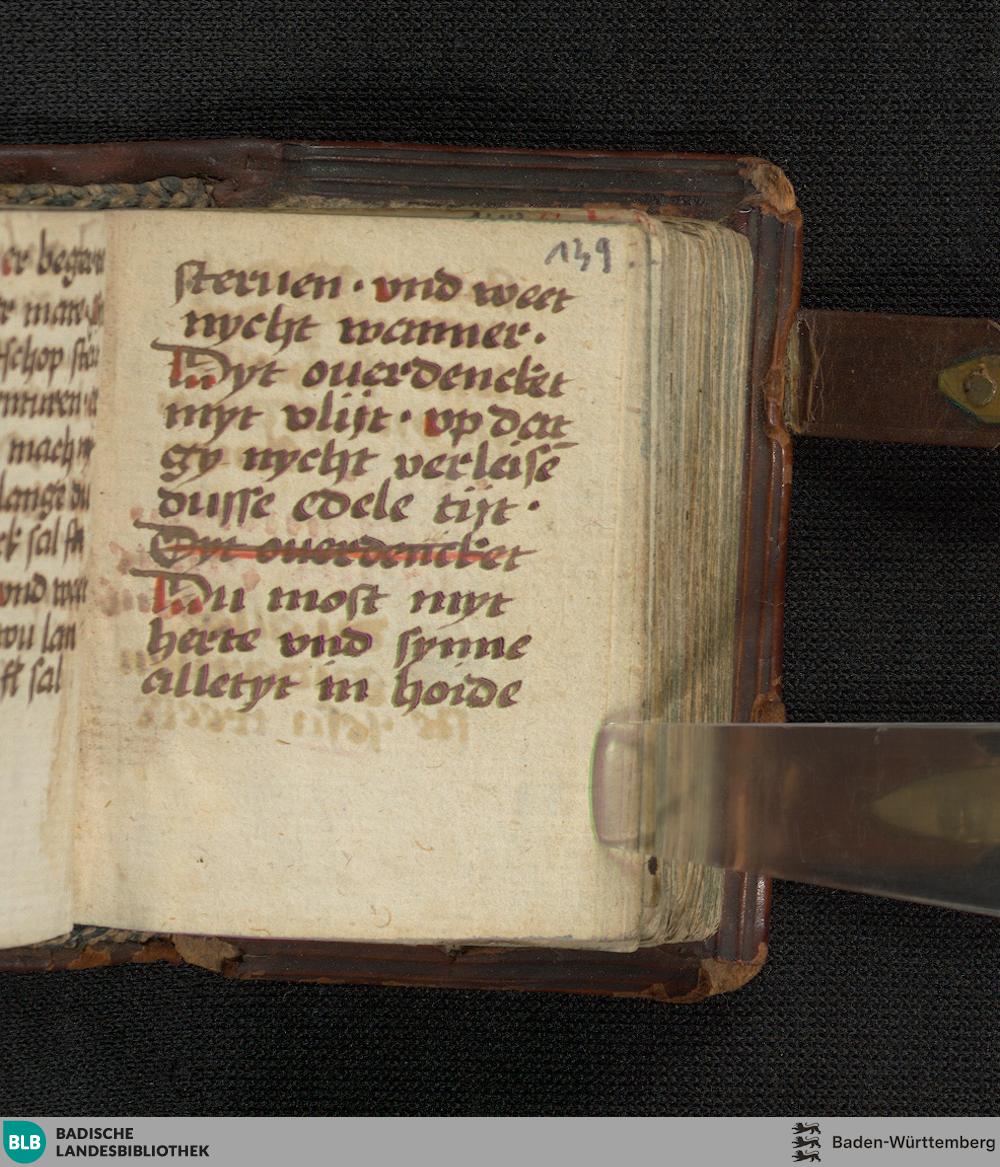 er
mach
lange du
ck sal
vnd
wu lan
sal
149
steruen · vnd weet
nycht wanner ·
Dyt ouerdencket
myt vlijt · vp dat
gy nycht verleisē
dusse edele tijt ·
Dyt ouerdencket
Du most myt
herte vnd synne
alletyt in hoide
BLB BADISCHE
LANDESBIBLIOTHEK
Baden-Württemberg